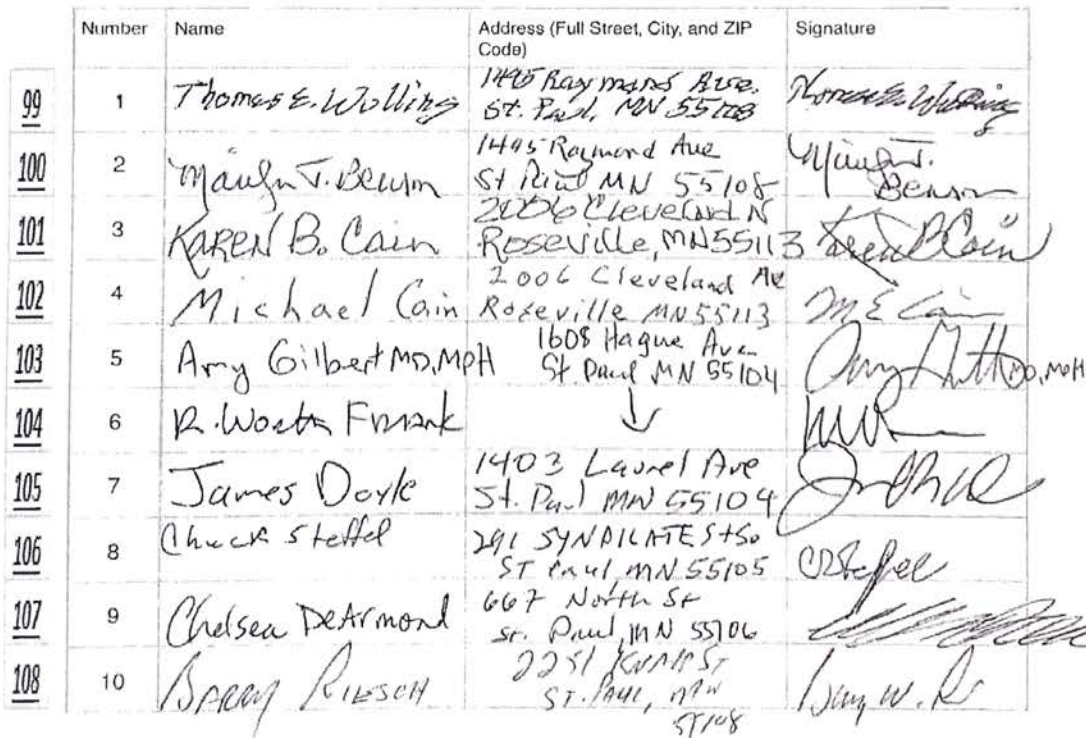 Number Name Address (Full Street, City, and ZIP Code) Signature
99 1 Thomas E. Wulling 1495 Raymond Ave. St. Paul, MN 55108 Thomas E. Wulling
100 2 T. Benson 1495 Raymond Ave St Paul MN 55108 T. Benson
101 3 KAREN B. Cain 2006 Cleveland N Roseville, MN 55113 Karen B Cain
102 4 Michael Cain 2006 Cleveland Ave Roseville MN 55113 M E Cain
103 5 Amy Gilbert MD, MPH 1608 Hague Ave St. Paul MN 55104 Amy MD, MPH
104 6 R. ↓
105 7 James Doyle 1403 Laurel Ave St. Paul MN 55104
106 8 Chuck Steffel 291 SYNDICATE St So ST Paul, MN 55105 Steffel
107 9 Chelsea DeArmond 667 North St St. Paul, MN 55106
108 10 BARRY RIESCH 2251 KNAPP ST ST. PAUL, MN 55108